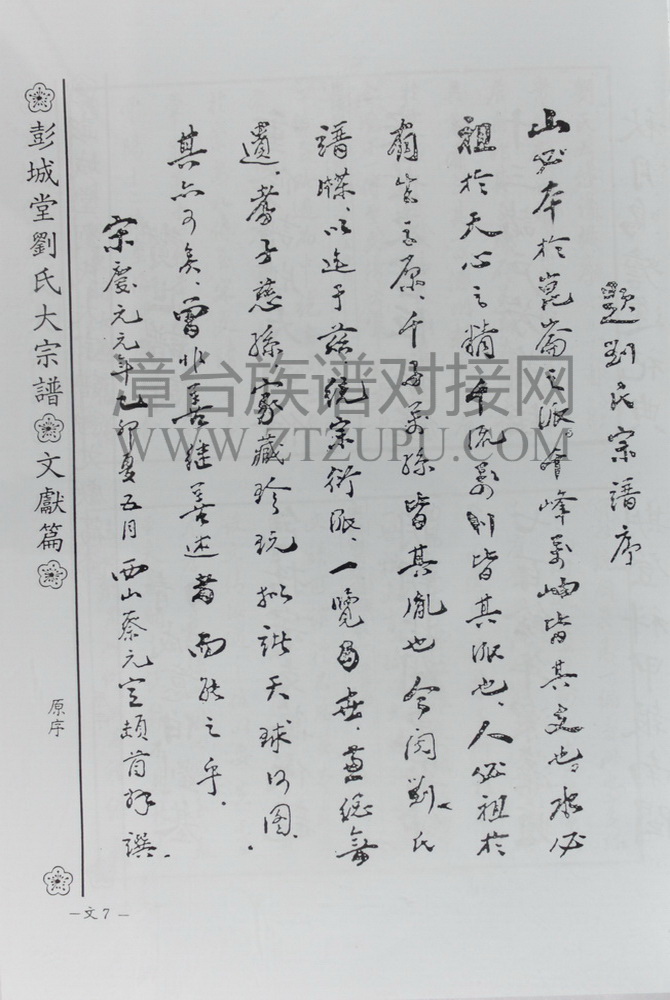 題劉氏宗譜序
山必本於崑崙之派、千峰萬岫皆其支也、水必
祖於天心之精、千流萬川皆其派也、人必祖於
之原、千子萬孫皆其胤也今閱劉氏
譜牒、以迄于茲統宗衍派、一覽
遺、孝子慈孫、家藏珍玩擬諸天球河圖
其亦可矣、曾非善继善述者而能之乎
宋慶元元年乙卯夏五月西山蔡元定頓首拜譔
彭城堂劉氏大宗譜 文獻篇 原序
—文7—
漳台族谱对接网
WWW.ZTZUPU.COM